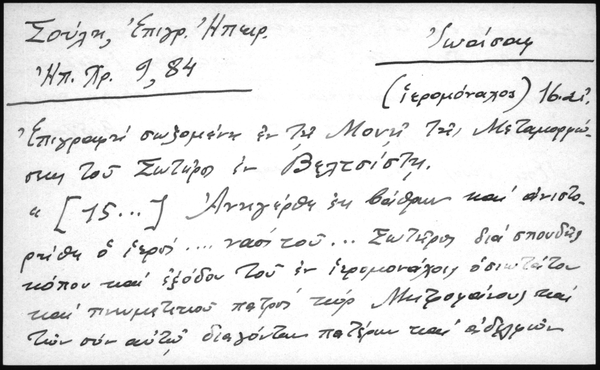 Σούλη, Ἐπιγρ. Ἠπειρ.
Ἠπ. Χρ. 9, 84
Ἰωάσαφ
(ἱερομόναχος) 16 αἰ.
Ἐπιγραφὴ σωζομένη ἐν τῇ Μονῇ τῆς Μεταμορφώ-
σεως τοῦ Σωτῆρος ἐν Βελτσίστῃ.
"[15...] Ἀνηγέρθη ἐκ βάθρων καὶ ἀνιστο-
ρήθη ὁ ἱερὸς ... ναὸς τοῦ ... Σωτῆρος διὰ σπουδῆς
κόπου καὶ ἐξόδου τοῦ ἐν ἱερομονάχοις ὁσιωτάτου
καὶ πνευματικοῦ πατρὸς κὺρ Μητροφάνους καὶ
τῶν σὺν αὐτῷ διαγόντων πατέρων καὶ ἀδελφῶν